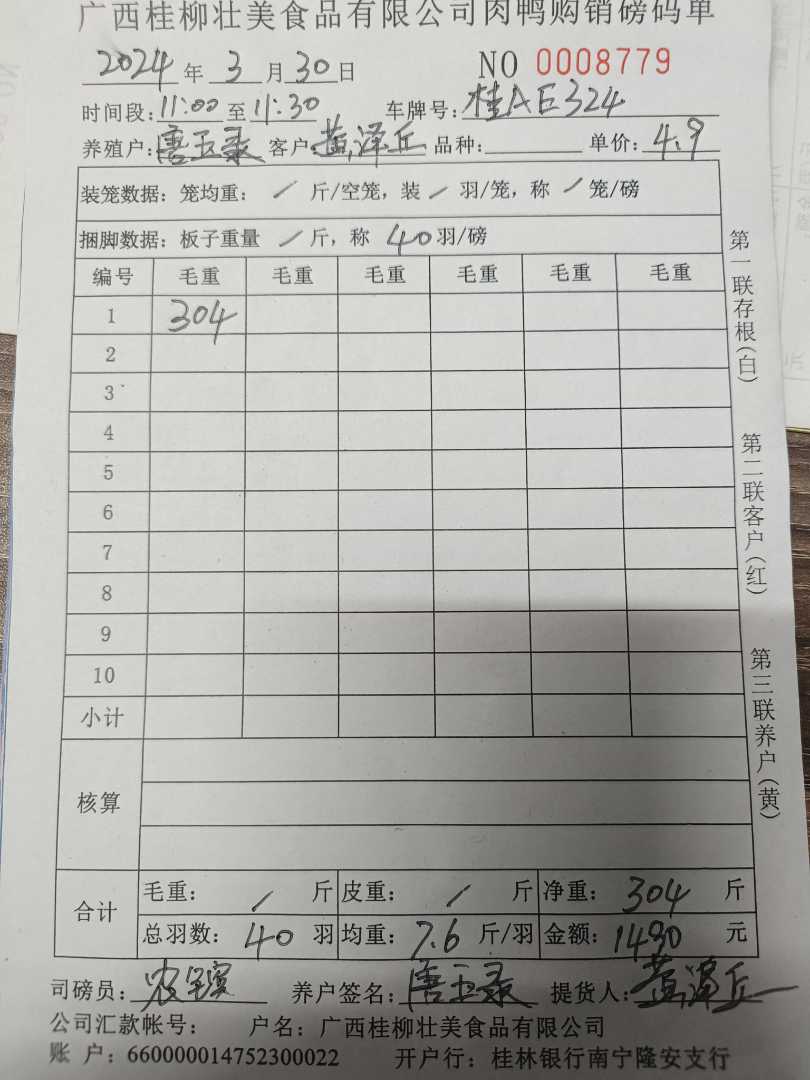 广西桂柳壮美食品有限公司肉鸭购销磅码单
2024年3月30日 NO 0008779
时间段:11:00至11:30 车牌号:桂AE324
养殖户:唐玉录 客户:黄泽丘 品种: 单价:4.9
装笼数据:笼均重:/斤/空笼,装/羽/笼,称/笼/磅
捆脚数据:板子重量/斤,称40羽/磅
编号 毛重 毛重 毛重 毛重 毛重 毛重
1 304
2
3
4
5
6
7
8
9
10
小计
核算
合计 毛重:/斤 皮重:/斤 净重:304斤
总羽数:40羽 均重:7.6斤/羽 金额:1490元
司磅员:农 养户签名:唐玉录 提货人:黄泽丘
公司汇款帐号: 户名:广西桂柳壮美食品有限公司
账户:660000014752300022 开户行:桂林银行南宁隆安支行
第一联存根(白)
第二联客户(红)
第三联养户(黄)